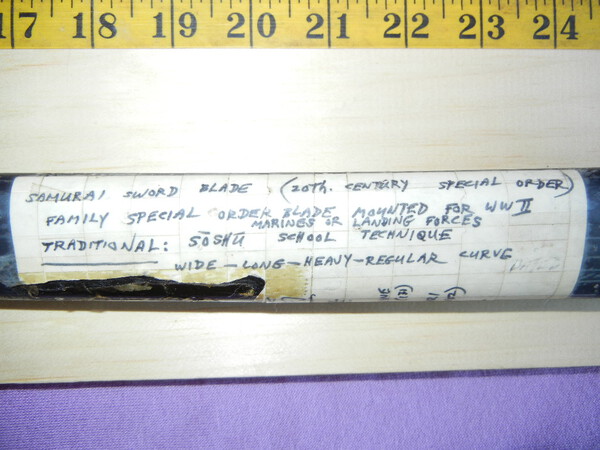 17 18 19 20 21 22 23 24
SAMURAI SWORD BLADE (20th. CENTURY SPECIAL ORDER)
FAMILY SPECIAL ORDER BLADE MOUNTED FOR WW II
MARINES OR LANDING FORCES
TRADITIONAL: SŌSHŪ SCHOOL TECHNIQUE
WIDE-LONG-HEAVY-REGULAR CURVE